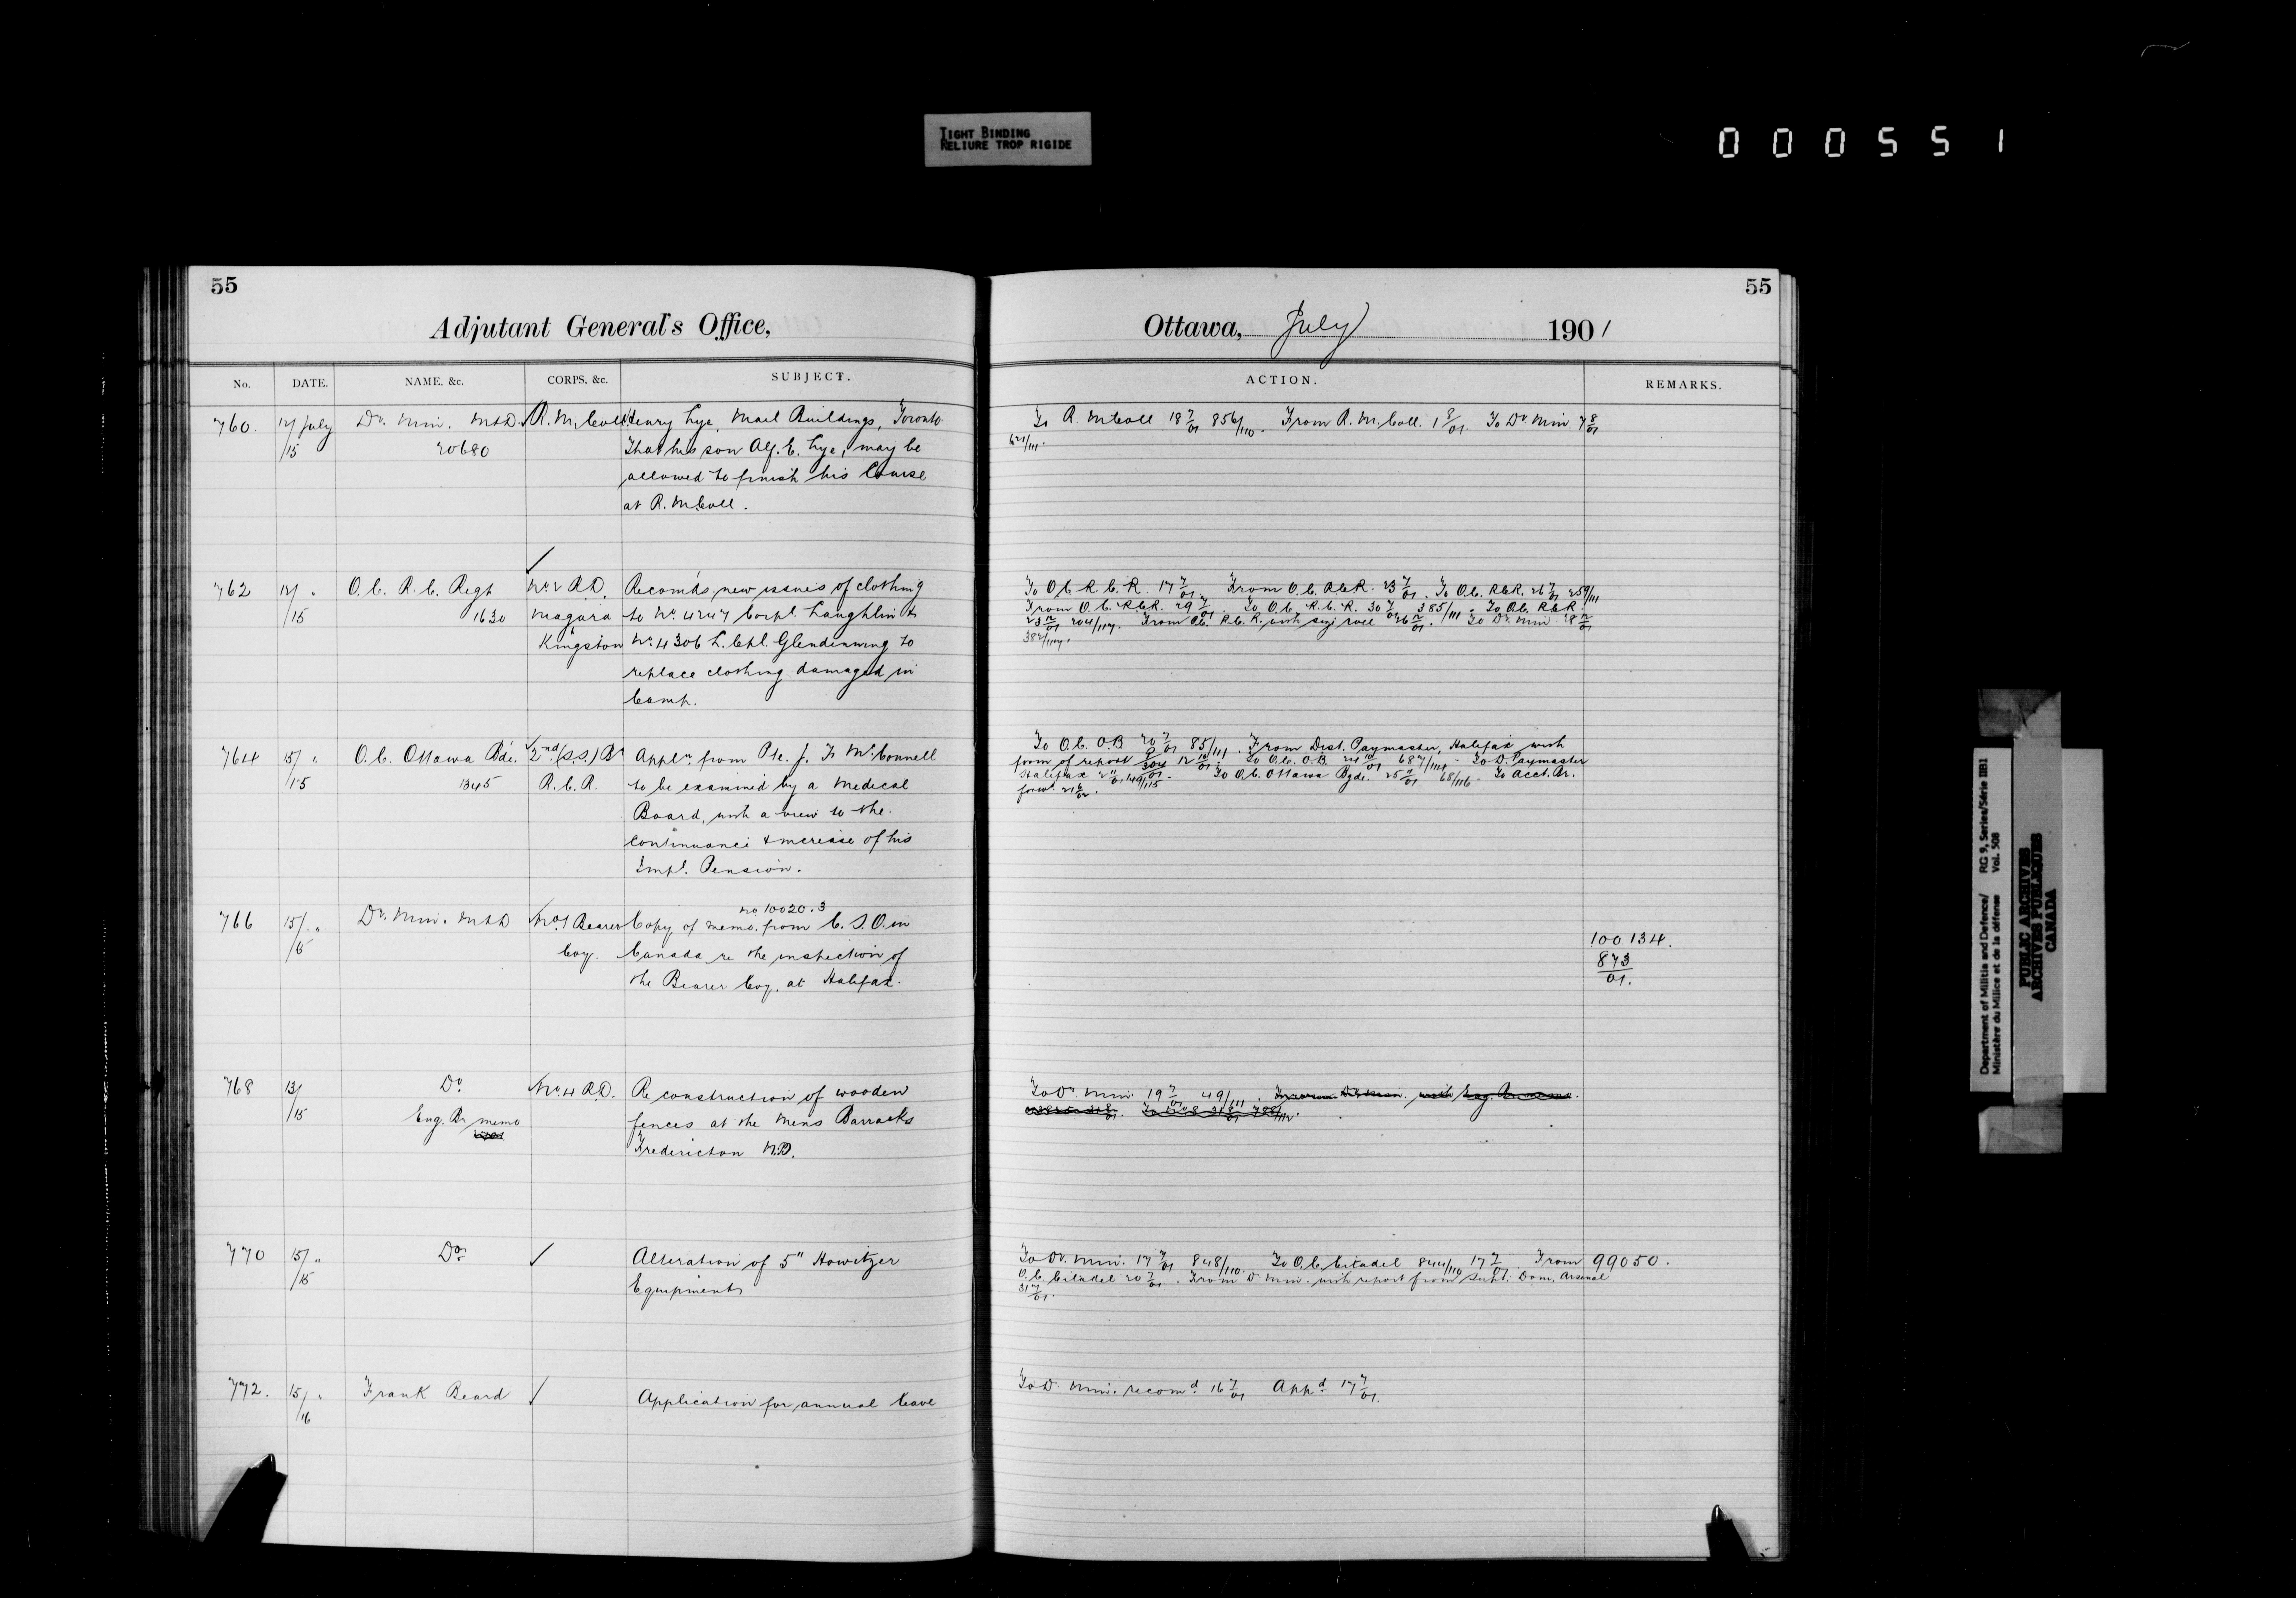 TIGHT BINDING
RELIURE TROP RIGIDE
000551
55
Adjutant General's Office,
No. DATE. NAME, &c. CORPS, &c. SUBJECT.
760. 12/15 July Dr. Min. M&D. R.M. Coll. Henry Lye, Mail Buildings, Toronto
20680 That his son Alf. E. Lye, may be
allowed to finish his Course
at R.M. Coll.
762 12/15 " O.C. R.C. Regt No. 2 R.D. Recomds. new issues of clothing
1630 Niagara to No. 4247 Corpl. Laughlin &
Kingston No. 4306 L. Cpl. Glendinning to
replace clothing damaged in
Camp.
764 15/15 " O.C. Ottawa Bde. 2nd (S.S.) Bn Appln. from Pte. J. F. McConnell
1345 R.C.R. to be examined by a Medical
Board, with a view to the
continuance & increase of his
Impl. Pension.
766 15/15 " Dr. Min. M&D No. 1 Bearer Copy of memo. no 10020.3 from C.S.O. in
Coy. Canada re the inspection of
the Bearer Coy. at Halifax.
768 13/15 Do. No. 4 R.D. Re construction of wooden
Eng. Br. memo fences at the Mens Barracks
Fredericton N.B.
770 15/15 " Do. Alteration of 5" Howitzer
Equipment
772. 15/16 " Frank Beard Application for annual leave
55
Ottawa, July 1901
ACTION. REMARKS.
To R. M. Coll 18 7/01 856/110. From R. M. Coll. 1 8/01. To Dr. Min 7 8/01
621/111.
To O.C. R.C.R. 17 7/01. From O.C. R.C.R. 23 7/01. To O.C. R.C.R. 26 7/01 259/111
From O.C. R.C.R. 29 7/01. To O.C. R.C.R. 30 7/01 385/111. To O.C. R.C.R.
23 12/01 204/117. From O.C. R.C.R. with roll 26 12/01. To Dr. Min 28 12/01
382/117.
To O.C. O.B 20 7/01 85/111. From Dist. Paymaster, Halifax with
form of report 12 10/01. To O.C. O.B. 24 10/01 687/114. To D. Paymaster
Halifax 2 11/01 149/115. To O.C. Ottawa Bgde. 25 11/01 68/116. To Acct. Br.
100134.
873/01.
To Dr. Min. 19 7/01 49/111.
To Dr. Min. 17 7/01 848/110. To O.C. Citadel 844/110 17 7/01. From 99050.
O.C. Citadel 20 7/01. From D. Min. with report from Supt. Dom. Arsenal
31 7/01.
To D. Min. recomd. 16 7/01 Appd 17 7/01.
Department of Militia and Defence/ RG 9, Series/Série IIB1
Ministère du Milice et de la défense Vol. 508
PUBLIC ARCHIVES
ARCHIVES PUBLIQUES
CANADA